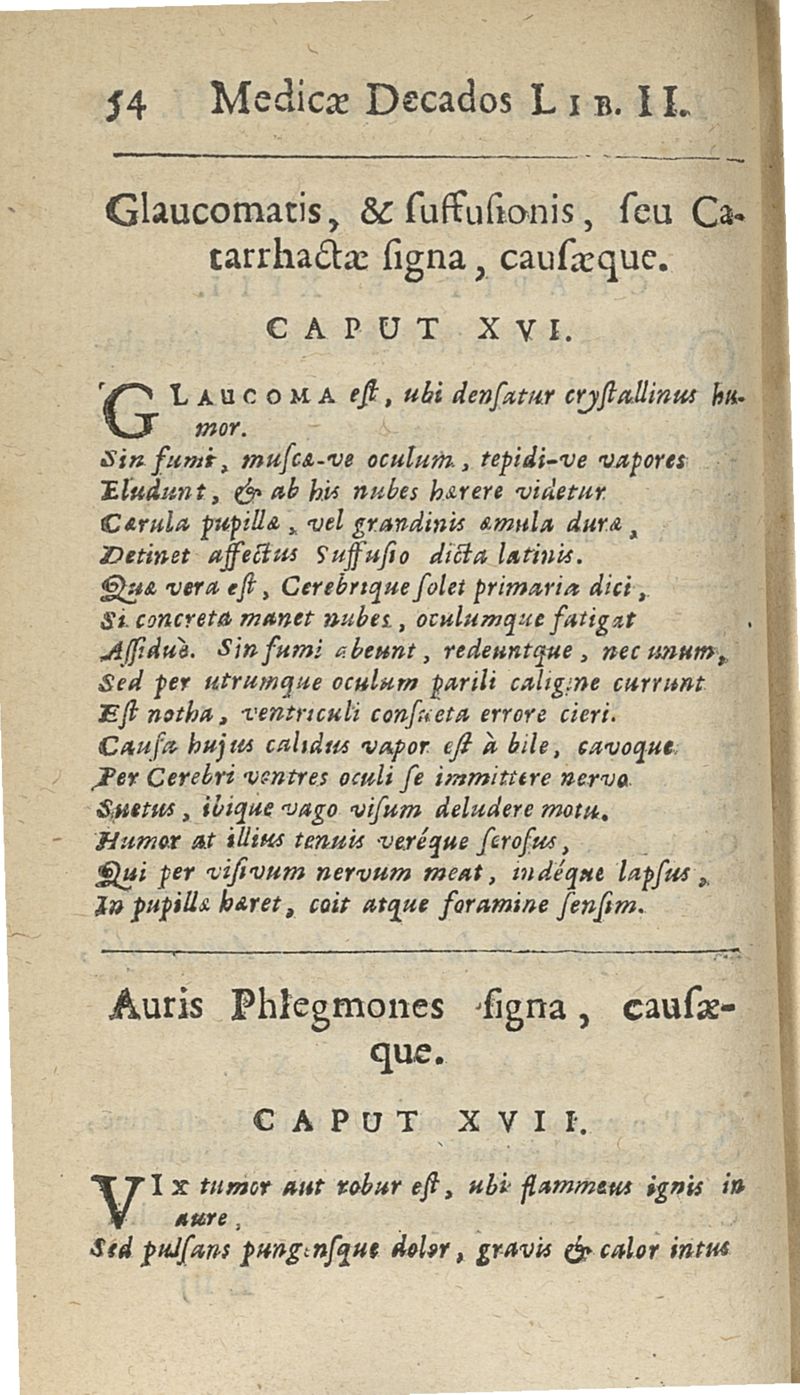 54 Medicæ Decados LIB. II.
Glaucomatis, & ſuffuſionis, ſeu Ca-
tarrhactæ ſigna, cauſæque.
CAPUT XVI.
GLAUCOMA eſt, ubi denſatur cryſtallinus hu-
mor.
Sin fumi, muſcæ-ve oculum, tepidi-ve vapores
Eludunt, & ab his nubes hærere videtur
Cærula pupillæ, vel grandinis æmula duræ,
Detinet affectus Suffuſio dicta latinis.
Quæ vera eſt, Cerebrique ſolet primaria dici,
Si concreta manet nubes, oculumque fatigat
Aſſiduè. Sin fumi abeunt, redeuntque, nec unum,
Sed per utrumque oculum parili caligine currunt
Eſt notha, ventriculi conſueta errore cieri.
Cauſa hujus calidus vapor eſt à bile, cavoque
Per Cerebri ventres oculi ſe immittere nervo
Suetus, ibique vago viſum deludere motu.
Humor at illius tenuis veréque ſeroſus,
Qui per viſivum nervum meat, indéque lapſus,
In pupillæ hæret, coit atque foramine ſenſim.
Auris Phlegmones ſigna, cauſæ-
que.
CAPUT XVII.
VIX tumor aut robur eſt, ubi flammeus ignis in
aure,
Sed pulſans pungenſque dolor, gravis & calor intus